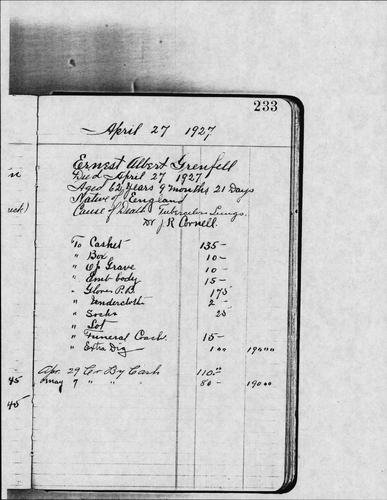 233
April 27 1927
Ernest Albert Grenfell
Died April 27 1927
Aged 62 years 9 months 21 Days
Native of England
Cause of Death Tuberculosis Lungs.
Dr J R Cornell.
To Casket 135 —
" Box 10 —
" Op Grave 10 —
" Emb body 15 —
" Gloves P.B. 1 75
" Undercloth 2 —
" Socks 25
" Lot
" Funeral Coach 15 —
" Extra Dig 1 00 190 00
Apr. 29 Cr By Cash 110.00
May 7 " " 80 — 190 00
45
45